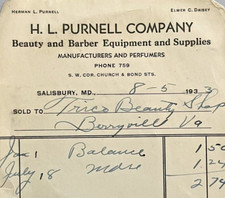 HERMAN L. PURNELL ELMER C. DAISEY
H. L. PURNELL COMPANY
Beauty and Barber Equipment and Supplies
MANUFACTURERS AND PERFUMERS
PHONE 759
S. W. COR. CHURCH & BOND STS.
SALISBURY, MD., 8-5 193
SOLD TO Trico Beauty Shop
Berryville Va
1 Balance 1 50
July 18 Mdse 1 24
2 74